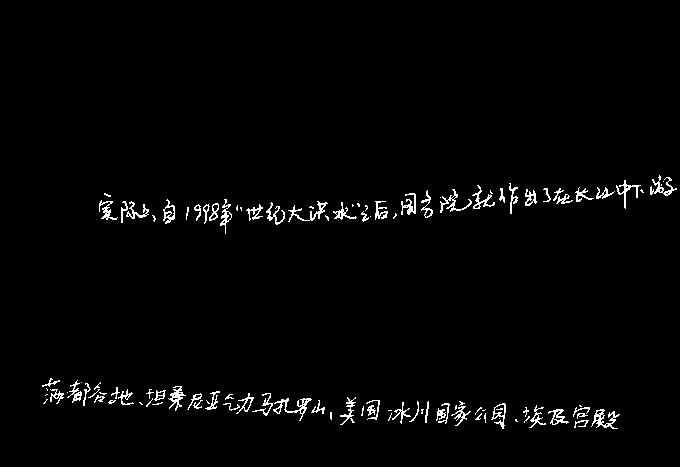 实际上,自1998年“世纪大洪水”之后,国务院就作出了在长江中下游
满都各地、坦桑尼亚乞力马扎罗山,美国冰川国家公园、埃及宫殿